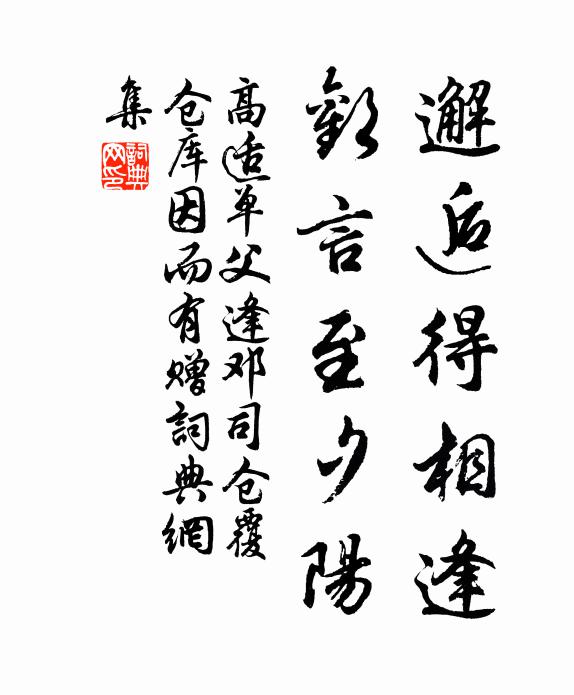 邂逅得相逢
歡言至夕陽
高适单父逢邓司仓覆
仓库因而有赠詞典網
集
詞典網印